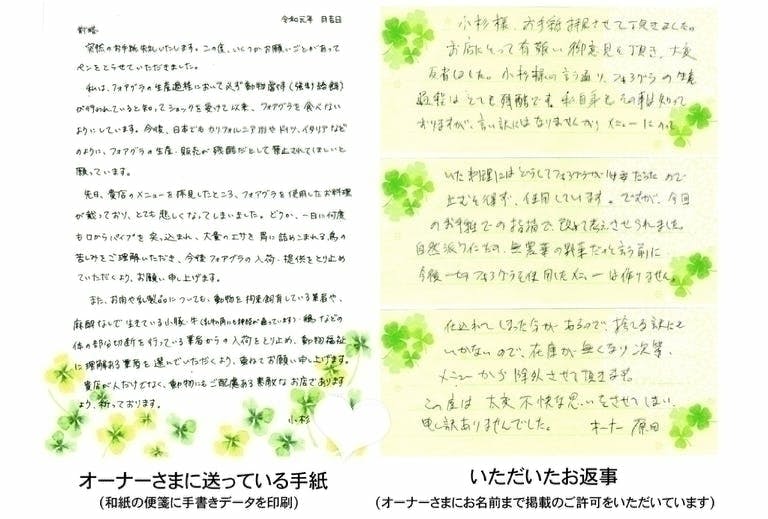 令和元年 月吉日
前略
突然のお手紙失礼いたします。この度、いくつかお願いごとがあって
ペンをとらせていただきました。
私は、フォアグラの生産過程において必ず動物虐待(強制給餌)
が行われていると知ってショックを受けて以来、フォアグラを食べない
ようにしています。今後、日本でもカリフォルニア州やドイツ、イタリアなど
のように、フォアグラの生産・販売が残酷だとして禁止されてほしいと
願っています。
先日、貴店のメニューを拝見したところ、フォアグラを使用したお料理
が載っており、とても悲しくなってしまいました。どうか、一日に何度
も口からパイプを突っ込まれ、大量のエサを胃に詰めこまれる鳥の
苦しみをご理解いただき、今後フォアグラの入荷・提供をとり止め
ていただくよう、お願い申し上げます。
また、お肉や乳製品についても、動物を拘束飼育している業者や、
麻酔なしで生きている小豚・牛(乳牛の角にも神経が通っています)・鶏などの
体の部分切断を行っている業者からの入荷をとり止め、動物福祉
に理解ある業者を選んでいただくよう、重ねてお願い申し上げます。
貴店が人だけでなく、動物にもご配慮ある素敵なお店であります
よう、祈っております。
小杉
オーナーさまに送っている手紙
(和紙の便箋に手書きデータを印刷)
小杉様、お手紙拝見させて頂きました。
お店にとって有難い御意見を頂き、大変
反省しました。小杉様の言う通り、フォアグラの生産
過程はとても残酷です。私自身もその事は知って
おりますが、言い訳にはなりませんが、メニューにのって
いた料理にはどうしてフォアグラが必要だったので
止むを得ず、使用しています。ですが、今回
のお手紙での指摘で、改めて考えさせられました。
自然派ワインだの、無農薬の野菜だの言う前に
今後一切フォアグラを使用したメニューは作りません。
仕込れてしまった分があるので、捨てる訳にも
いかないので、在庫が無くなり次第、
メニューから除外させて頂きます。
この度は大変不快な思いをさせてしまい、
申し訳ありませんでした。 オーナー 原田
いただいたお返事
(オーナーさまにお名前まで掲載のご許可をいただいています)